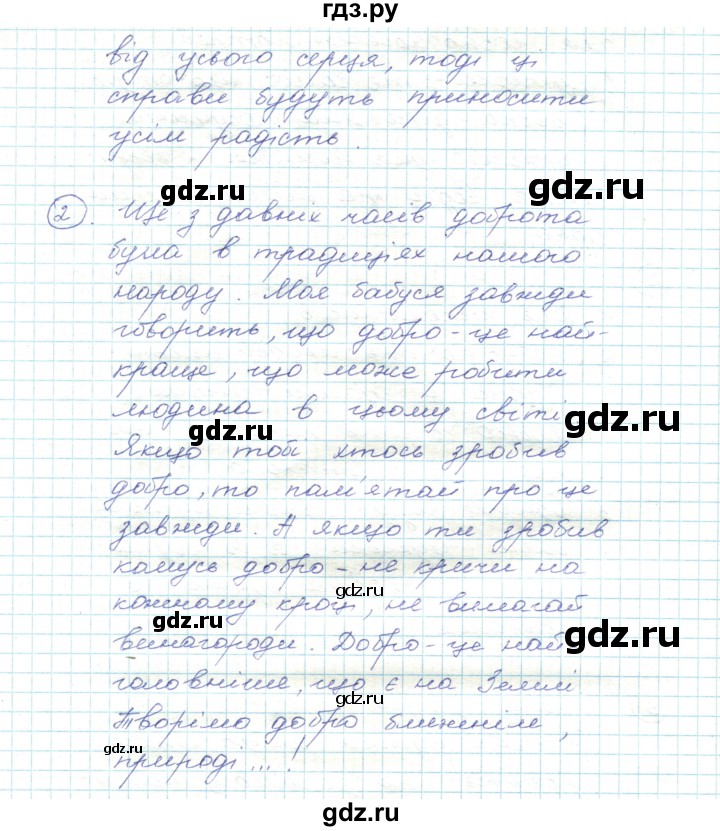 гдз.ру
від усього серця, тоді ці
справи будуть приносити
усім радість.
gdz.ru gdz.ru
2. Ще з давніх часів доброта
була в традиціях нашого
народу. Моя бабуся завжди
говорить, що добро - це най-
краще, що може робити
людина в цьому світі
gdz.ru gdz.ru
Якщо тобі хтось зробив
добро, то пам'ятай про це
завжди. А якщо ти зробив
комусь добро - не кричи на
gdz.ru
кожному кроці, не вимагай
gdz.ru gdz.ru
винагороди. Добро - це най
головніше, що є на Землі
Творімо добро ближнім,
gdz.ru
природі...!
gdz.ru
gdz.ru